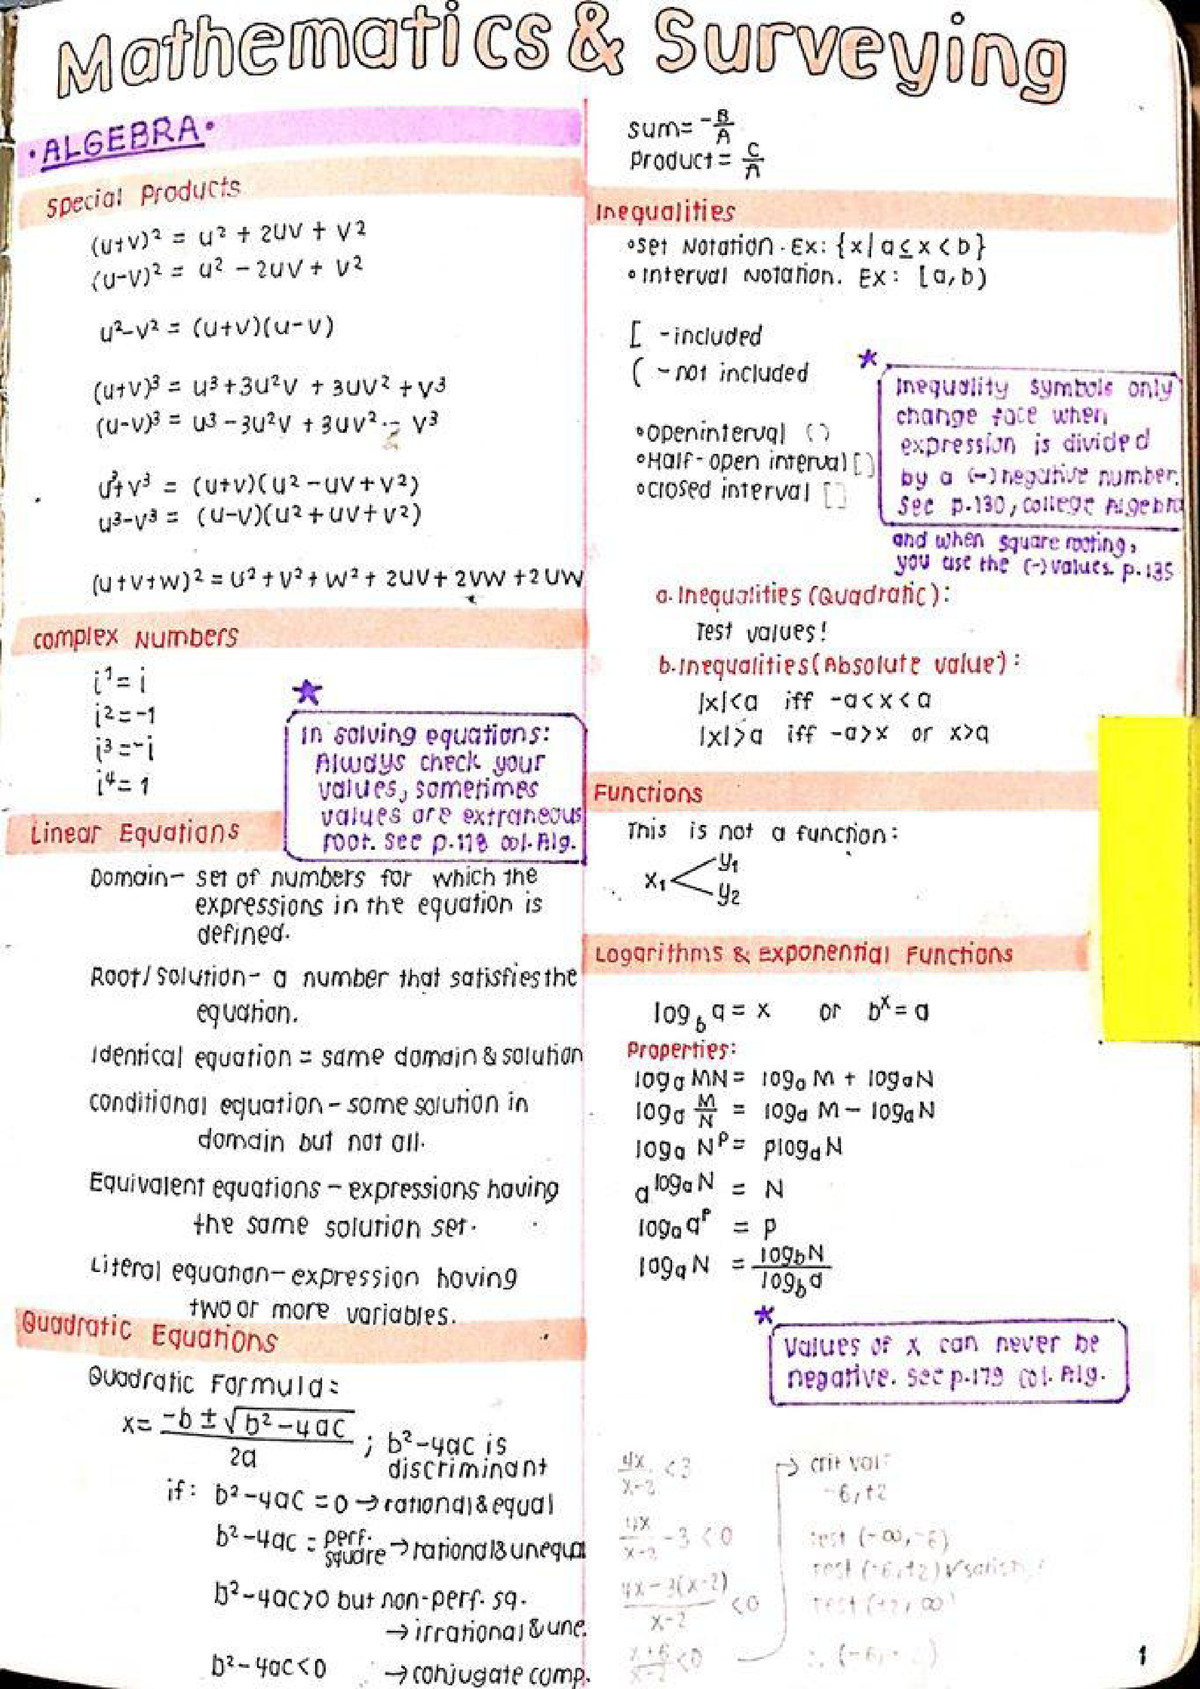 Mathematics & Surveying
• ALGEBRA •
Special Products
(u+v)² = u² + 2uv + v²
(u-v)² = u² - 2uv + v²
u²-v² = (u+v)(u-v)
(u+v)³ = u³+3u²v + 3uv² + v³
(u-v)³ = u³ - 3u²v + 3uv² - v³
u³+v³ = (u+v)(u² - uv + v²)
u³-v³ = (u-v)(u² + uv + v²)
(u+v+w)² = u² + v² + w² + 2uv + 2vw + 2uw
Complex Numbers
i¹ = i
i² = -1
i³ = -i
i⁴ = 1
★
In solving equations:
Always check your
values, sometimes
values are extraneous
root. See p.118 col. Alg.
Linear Equations
Domain- set of numbers for which the
expressions in the equation is
defined.
Root/Solution- a number that satisfies the
equation.
Identical equation = same domain & solution
Conditional equation - some solution in
domain but not all.
Equivalent equations - expressions having
the same solution set.
Literal equation- expression having
two or more variables.
Quadratic Equations
Quadratic Formula:
x = (-b ± √(b²-4ac)) / 2a ; b²-4ac is
discriminant
if: b²-4ac = 0 → rational & equal
b²-4ac = perf. square → rational & unequal
b²-4ac>0 but non-perf. sq.
→ irrational & une.
b²-4ac<0 → conjugate comp.
sum = -B/A
Product = C/A
Inequalities
• Set Notation. Ex: {x | a ≤ x < b}
• Interval Notation. Ex: [a,b)
[ - included
( - not included
• Open interval ( )
• Half-open interval [ )
• Closed interval [ ]
★
Inequality symbols only
change face when
expression is divided
by a (-) negative number.
See p.130, College Algebra
and when square rooting,
you use the (-) values. p.135
a. Inequalities (Quadratic):
Test values!
b. Inequalities (Absolute value):
|x|<a iff -a<x<a
|x|>a iff -a>x or x>a
Functions
This is not a function:
x₁ < y₁
y₂
Logarithms & Exponential Functions
log_b a = x or bˣ = a
Properties:
logₐ MN = logₐ M + logₐ N
logₐ M/N = logₐ M - logₐ N
logₐ Nᵖ = p logₐ N
a^(logₐ N) = N
logₐ aᵖ = p
logₐ N = log_b N / log_b a
★
Values of x can never be
negative. See p.179 col. Alg.
4x/(x-2) < 3
4x/(x-2) - 3 < 0
(4x-3(x-2))/(x-2) < 0
(x+6)/(x-2) < 0
→ crit val:
-6, +2
test (-∞, -6)
test (-6, +2) ✓
test (+2, ∞)
1